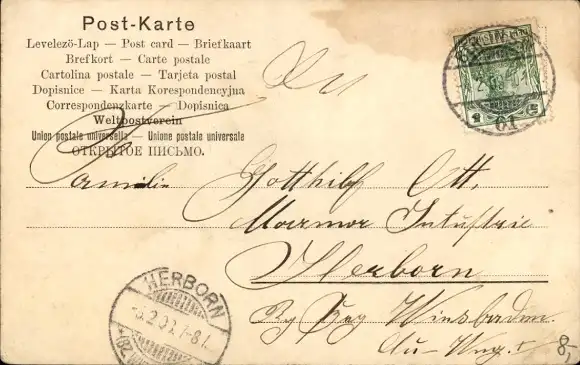 Post-Karte
Levelező-Lap — Post card — Briefkaart
Brefkort — Carte postale
Cartolina postale — Tarjeta postal
Dopisnice — Karta Korespondencyjna
Correspondenzkarte — Dopisnica
Weltpostverein
Union postale universelle — Unione postale universale
ОТКРЫТОЕ ПИСЬМО.
An
Familie Gotthilf Ott,
Marmor Intustrie
Herborn
Wiesbaden.
HERBORN
61
8,-